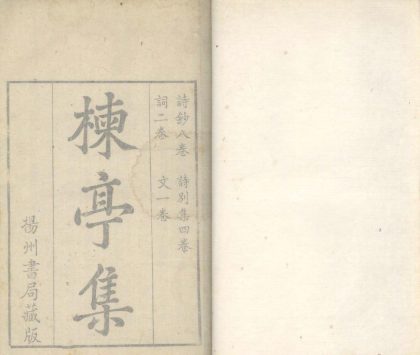 詩鈔八卷 詩別集四卷
詞二卷 文一卷
楝亭集
揚州書局藏版